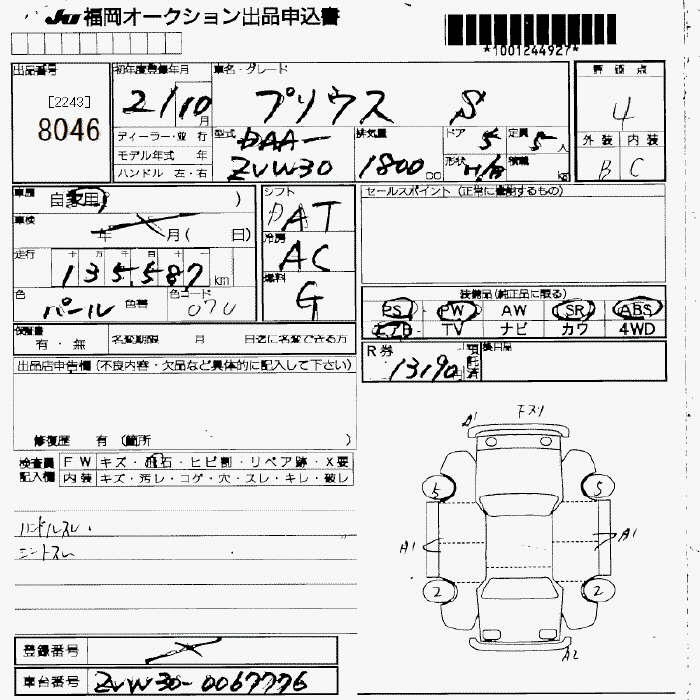 JU 福岡オークション出品申込書
*1001244927*
出品番号 [2243] 8046
初年度登録年月 21/10月
車名・グレード プリウス S
評価点 4
外装 B 内装 C
ディーラー・並行
モデル年式 年
ハンドル 左・右
型式 DAA-ZVW30
排気量 1800cc
ドア 5 定員 5人
形状 H/B 積載 kg
車歴 自家用 )
車検 年 月( 日)
走行 十万千百十一
135,587 km
色 パール 色替 色コード 070
シフト DAT
冷房 AC
燃料 G
セールスポイント (正常に機能するもの)
装備品(純正品に限る)
PS PW AW SR ABS
エアB TV ナビ カワ 4WD
保証書 有・無
名変期限 月 日迄に名変できる方
R券 13190円 預託済
出品店申告欄 (不良内容・欠品など具体的に記入して下さい)
修復歴 有 (箇所 )
検査員記入欄
FW キズ・飛石・ヒビ割・リペア跡・X要
内装 キズ・汚レ・コゲ・穴・スレ・キレ・破レ
ハンドルスレ.
A1 下スリ
5 5
A1 A1
2 2
A2
登録番号
車台番号 ZVW30-0067776